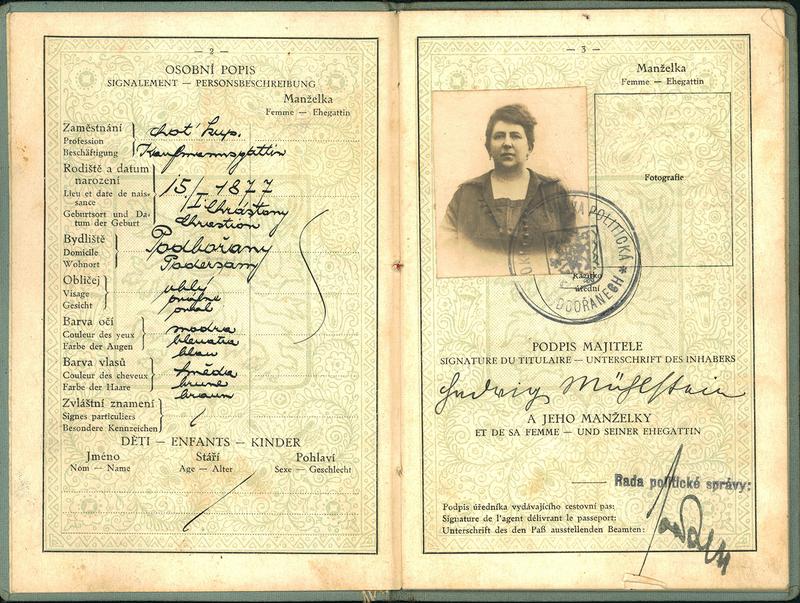 — 2 —
OSOBNÍ POPIS
SIGNALEMENT — PERSONSBESCHREIBUNG
Manželka
Femme — Ehegattin
Zaměstnání
Profession
Beschäftigung
choť kup.
Kaufmannsgattin
Rodiště a datum
narození
Lieu et date de nais-
sance
Geburtsort und Da-
tum der Geburt
15/I 1877
Chrástany
Chrastian
Bydliště
Domicile
Wohnort
Podbořany
Podersam
Obličej
Visage
Gesicht
oblý
ovale
oval
Barva očí
Couleur des yeux
Farbe der Augen
modra
bleuatre
blau
Barva vlasů
Couleur des cheveux
Farbe der Haare
hnědá
brune
braun
Zvláštní znamení
Signes particuliers
Besondere Kennzeichen
DĚTI — ENFANTS — KINDER
Jméno
Nom — Name
Stáří
Age — Alter
Pohlaví
Sexe — Geschlecht
— 3 —
Manželka
Femme — Ehegattin
Fotografie
POLITICKÁ
Razítko
úřední
PODPIS MAJITELE
SIGNATURE DU TITULAIRE — UNTERSCHRIFT DES INHABERS
Hedwig Mühlstein
A JEHO MANŽELKY
ET DE SA FEMME — UND SEINER EHEGATTIN
Rada politické správy:
Podpis úředníka vydávajícího cestovní pas:
Signature de l'agent délivrant le passeport:
Unterschrift des den Paß ausstellenden Beamten: